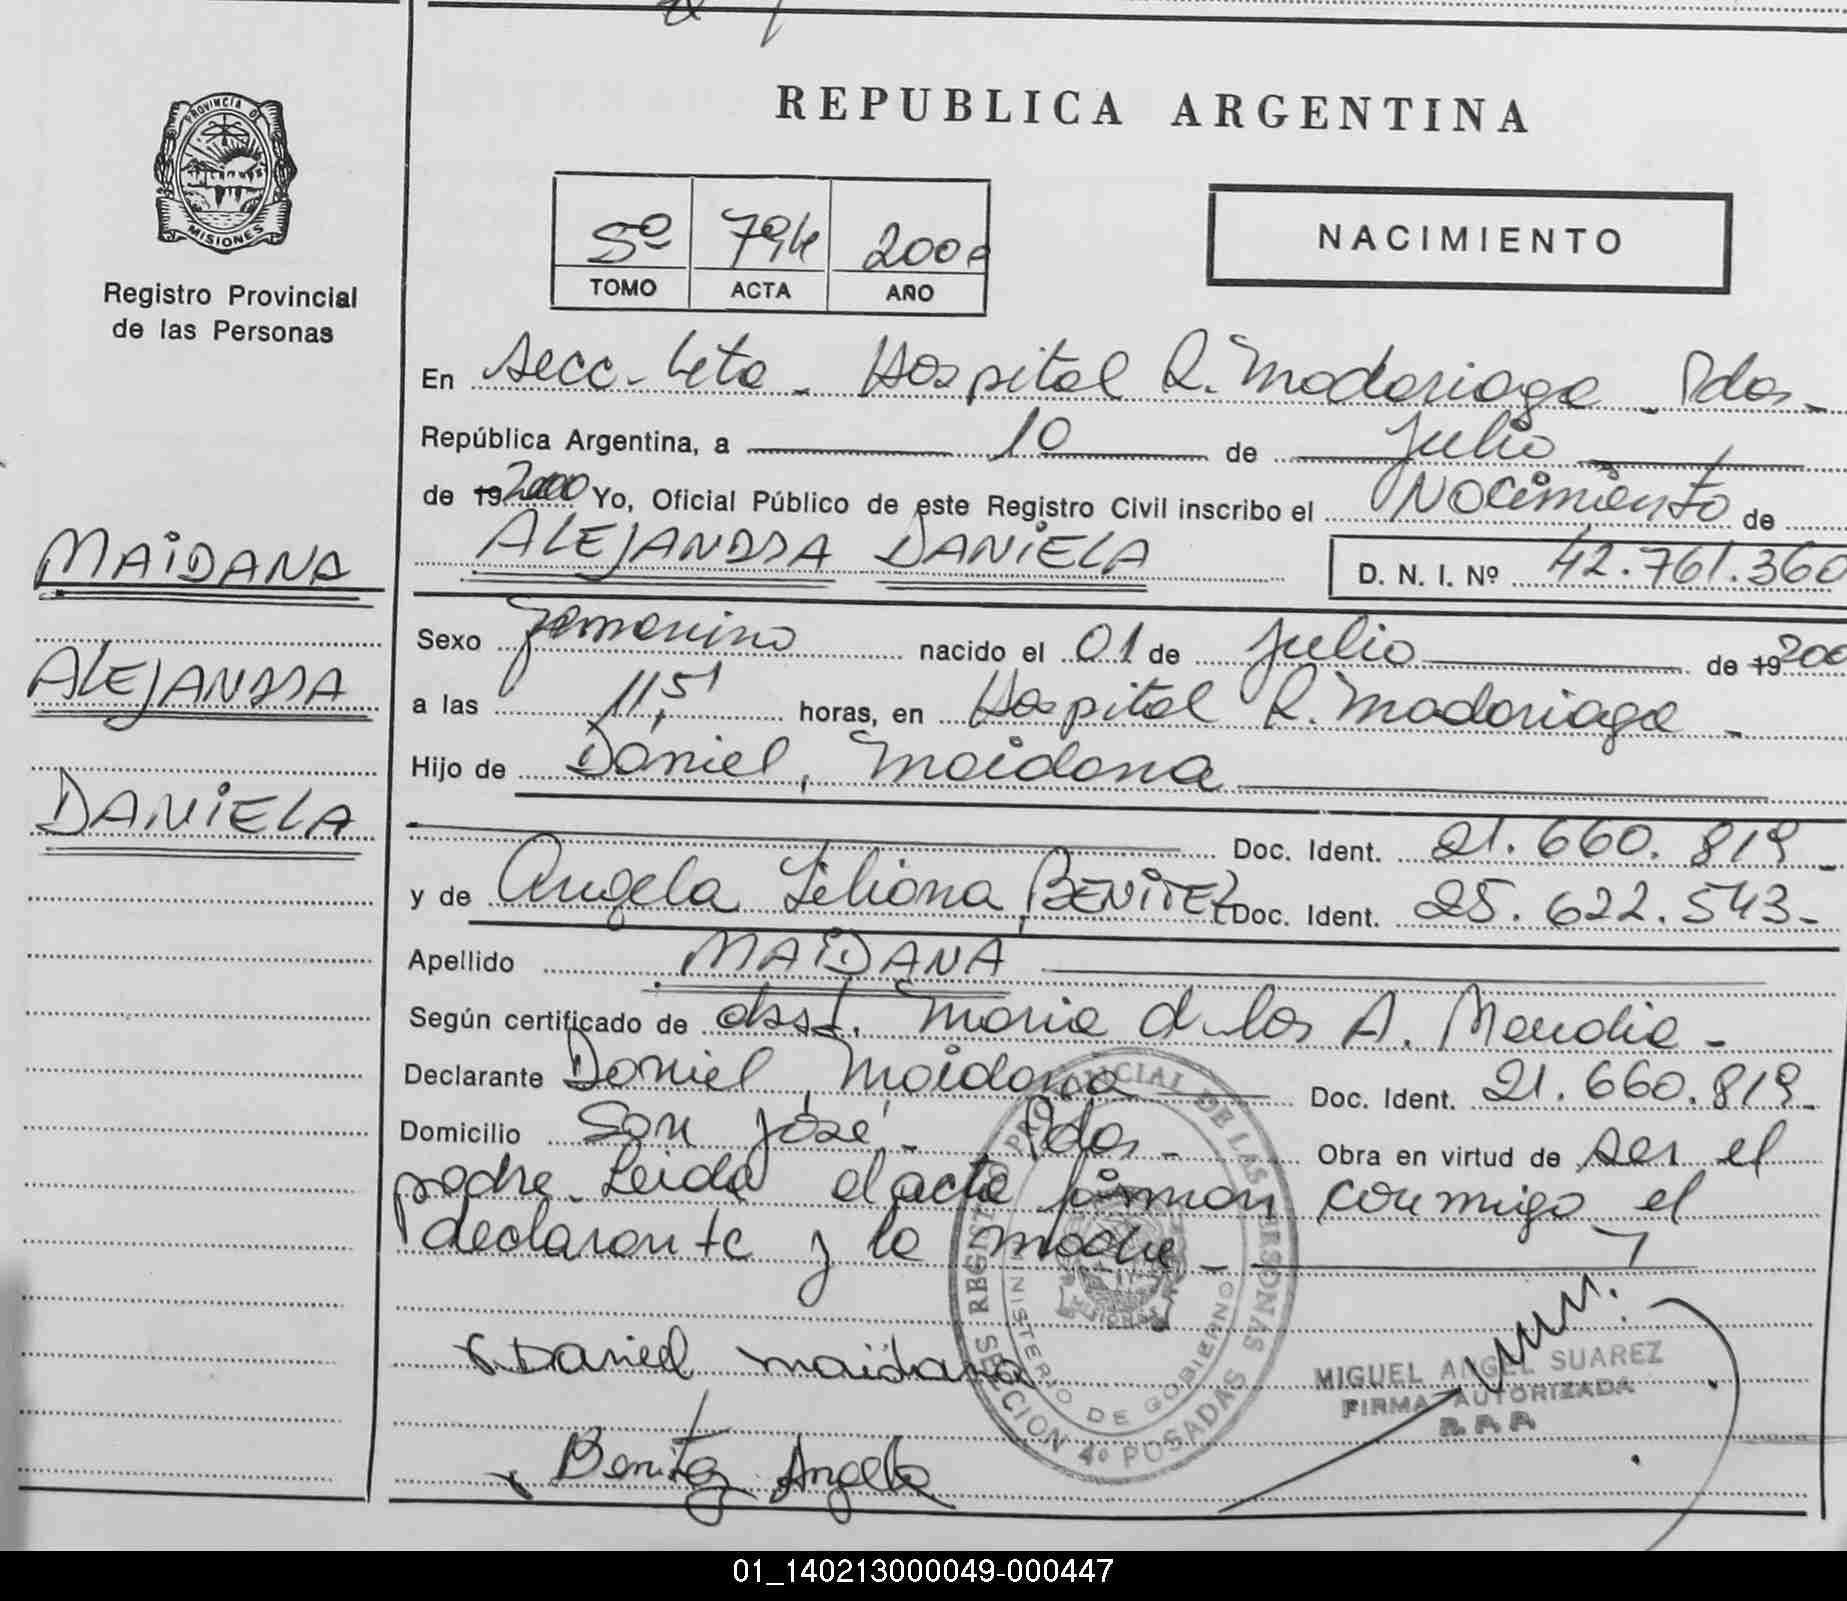 REPUBLICA ARGENTINA
PROVINCIA DE
MISIONES
Registro Provincial
de las Personas
5º 794 2000
TOMO ACTA AÑO
NACIMIENTO
En Secc. 4ta - Hospital R. Madariaga - Pdas -
República Argentina, a 10 de Julio
de 19 2000 Yo, Oficial Público de este Registro Civil inscribo el Nacimiento de
ALEJANDRA DANIELA D. N. I. Nº 42.761.360
MAIDANA
ALEJANDRA
DANIELA
Sexo femenino nacido el 01 de Julio de 19 200
a las 11,51 horas, en Hospital R. Madariaga -
Hijo de Daniel, Maidana
Doc. Ident. 21.660.819 -
y de Angela Liliana, BENITEZ Doc. Ident. 25.622.543 -
Apellido MAIDANA
Según certificado de obst. Maria d los A. Mendia -
Declarante Daniel Maidana Doc. Ident. 21.660.819 -
Domicilio San José - Pdas - Obra en virtud de ser el
padre. Leida el acta firman conmigo el
declarante y la madre -
Daniel maidana
Benitez Angela
REGISTRO PROVINCIAL DE LAS PERSONAS
MINISTERIO DE GOBIERNO
SECCION 4º POSADAS
MIGUEL ANGEL SUAREZ
FIRMA AUTORIZADA
01_140213000049-000447